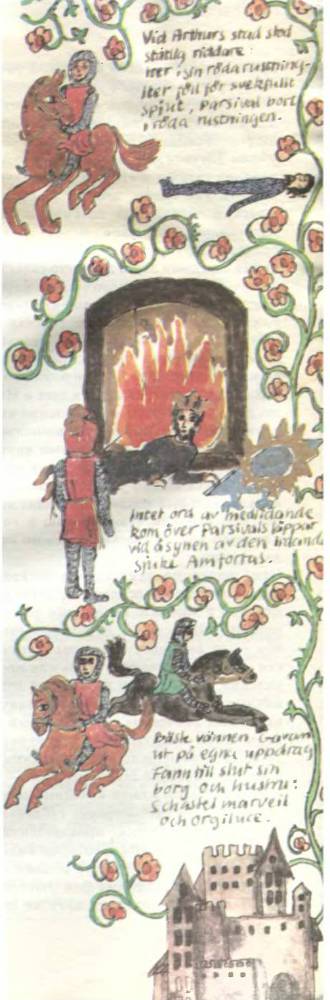 Vid Arthurs stad stod
ståtlig riddare
Iter i sin röda rustning
Iter föll för svekfullt
spjut, Parsival bort
röda rustningen.
Intet ord av medlidande
kom över Parsivals läppar
vid åsynen av den
sjuke Amfortas.
Bäste vännen Gavan
ut på egna uppdrag
Fann till slut sin
borg och hustru:
Schastel marveil
och Orgiluse.